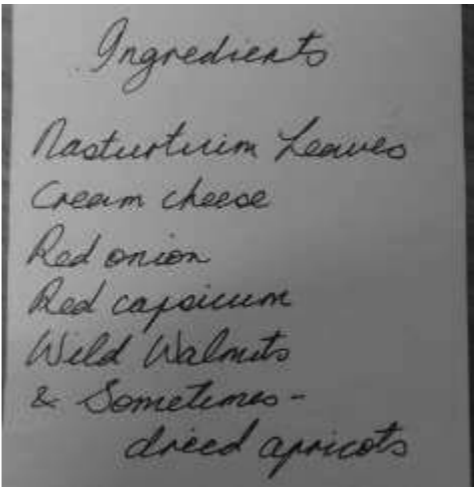 Ingredients
Nasturtuim Leaves
Cream cheese
Red onion
Red capsicum
Wild Walnuts
& Sometimes -
dried apricots